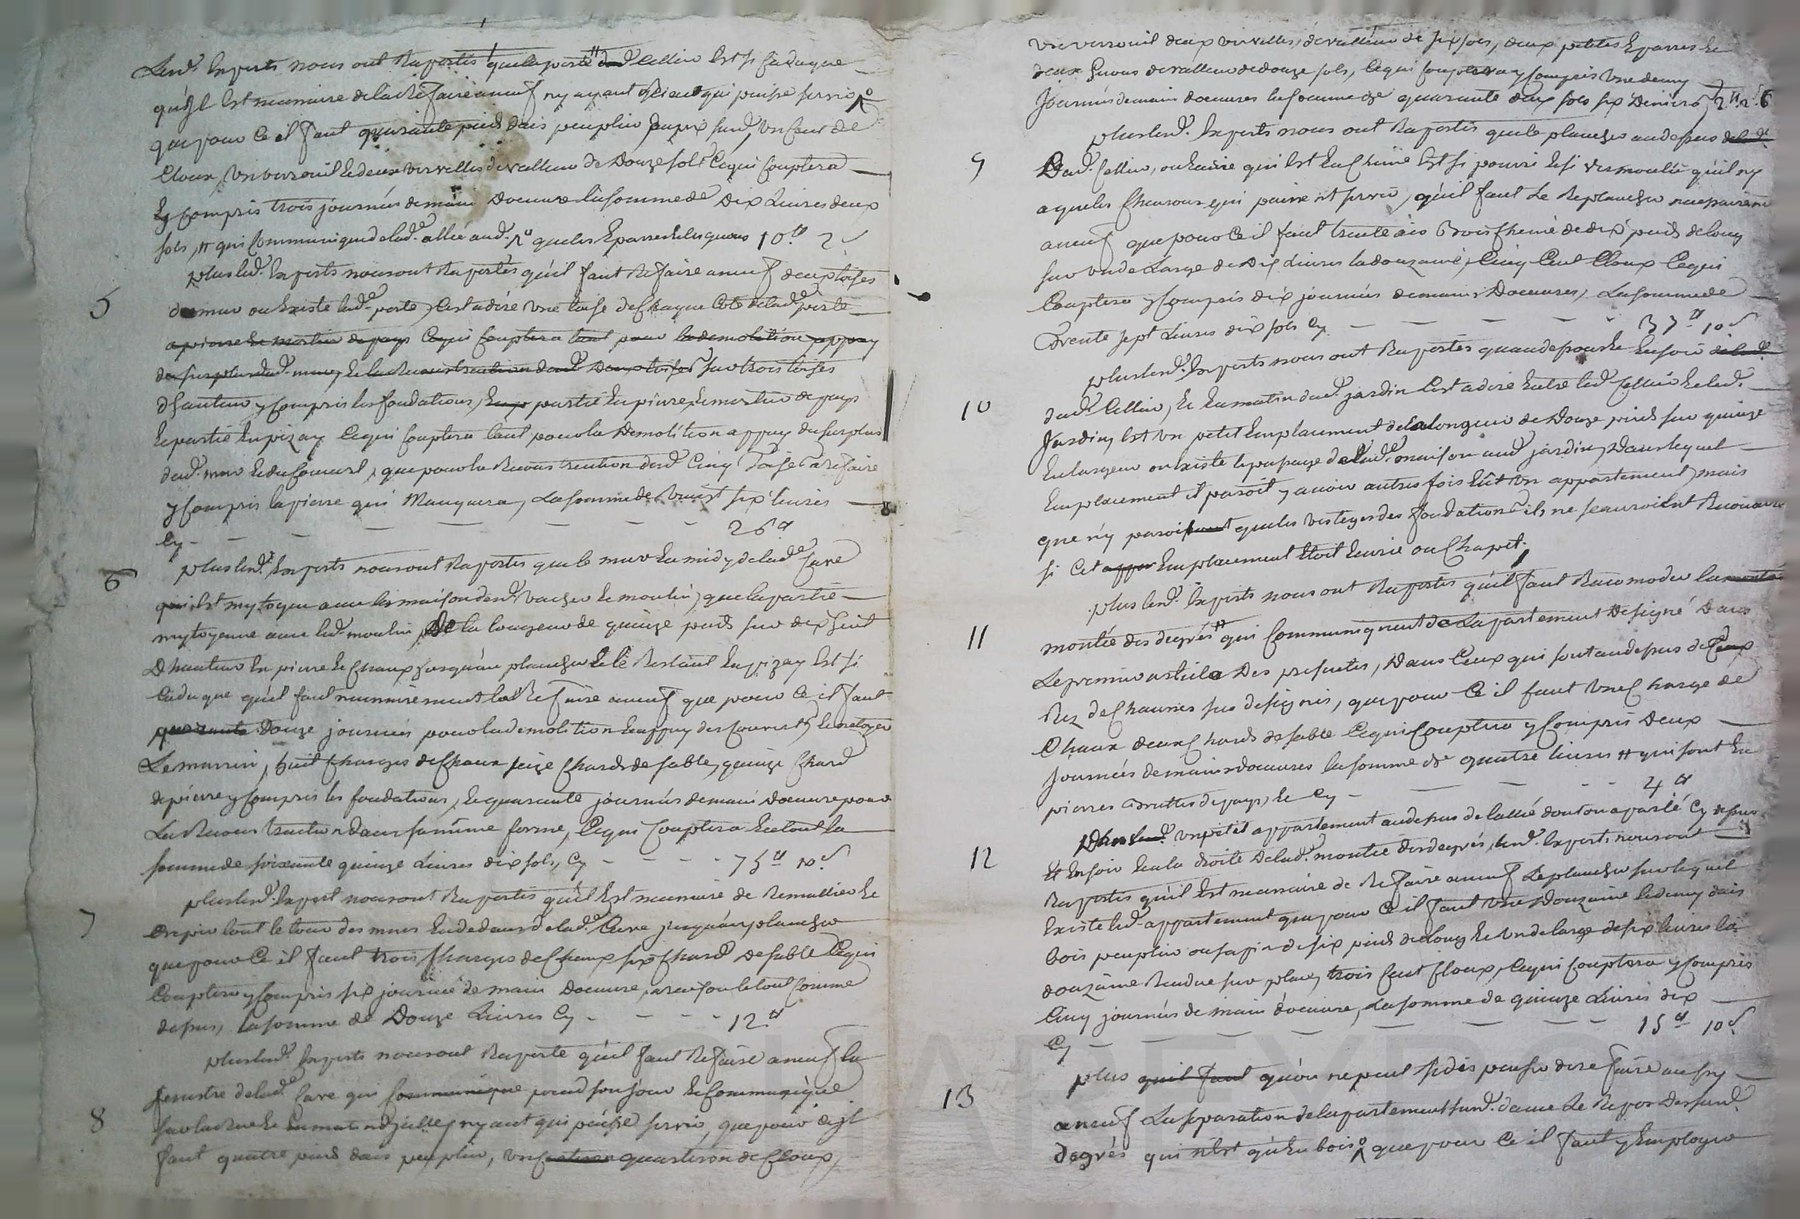 Lesd. Experts nous ont Raportés que la porte dud. Cellier Est si Caduque
qu'il Est necessaire de la Refaire a neuf ny ayant Rien qui puisse servir
que pour Ce il faut quarante pieds dais peuplier, un Cent de
Cloux, un verrouil Et deux virvelles de valleur de Douze sols Cequi Couptera
Ey Compris trois journées de main Doeuvre la somme de Dix Livres deux
sols, qui Communique de lad. allée aud. que les Eparres Et les gons 10 2
5
plus lesd. Experts nous ont Raportés qu'il faut Refaire a neuf deux toises
de mur ou Existe lad. porte, C'est a dire une toise de Chaque Coté de lad. porte
a pierre Et mortier de pays Cequi Couptera tant pour la demolition appuy
du surplus dud. mur, Et la Reconstruction sur trois toises
d'hauteur y Compris les fondations, partie En pierre Et mortier de pays
Et partie En pizay Cequi Couptera tant pour la Demolition appuy du surplus
dud. mur Et du Couvert, que pour la Reconstruction desd. Cinq Toise a Refaire
y Compris la pierre qui Manquera, La somme de Vingt six Livres
Cy - - - - - 26
6
plus lesd. Experts nous ont Raportés que le mur En midy de lad. Cave
qui Est mytoyen avec les maison desd. Et moulin, que la partie
mytoyenne avec led. moulin, De la longueur de quinze pieds sur dix huit
D'hauteur En pierre Et Chaux jusqu'au plancher Et le Restant En pizay Est si
Caduque qu'il faut necessairement la Refaire a neuf que pour Ce il faut
quarante Douze journées pour la demolition En appuy des Couverts, Et netoyer
Le marrin, huit Charges de Chaux seize Chards de sable, quinze Chard
de pierre y Compris les fondations, Et quarante journées de main Doeuvre pour
La Reconstruction dans sa même forme, Cequi Couptera En tout la
somme de soixante quinze Livres dix sols, Cy - - - - 75 10
7
plus lesd. Expert nous ont Raportés qu'il Est necessaire de Remallier Et
Crepir tout le tour des murs En dedans de lad. Cave jusqu'au plancher
que pour Ce il faut trois Charges de Chaux six Chard De sable Cequi
Couptera y Compris six journée de main Doeuvre, le tout Comme
dessus, La somme de Douze Livres Cy - - - - 12
8
plus lesd. Experts nous ont Raporté qu'il faut Refaire a neuf la
fenestre de lad. Cave qui Communique prend son jour Et Communique
sur la Rue En matin, ny ayant qui puisse servir, que pour Ce il
faut quatre pieds dais peuplier, un quarteron de Cloux,
un verrouil deux virvelles, de valleur de six sols, deux petites Eparres Et
deux Gons de valleur de douze sols, Cequi Couptera y Compris une demy
journée de main doeuvres la somme de quarante deux sols six Deniers 2 2 6
9
plus lesd. Experts nous ont Raportés que le plancher au dessus
Dud. Cellier, ou Ecurie qui Est En Chêne Est si pourri Et si vermoulu qu'il ny
a que les Chevrons qui puissent servir, qu'il faut Le Replancher necessairement
a neuf que pour Ce il faut trente ais Bois Chêne de dix pieds de long
sur un de Large de Dix Livres la douzaine, Cinq Cent Cloux Cequi
Couptera y Compris dix journées de mains Doeuvres, La somme de
Trente sept Livres dix sols Cy - - - - - 37 10
10
plus lesd. Experts nous ont Raportés
dud. Cellier, Et En matin dud. jardin C'est a dire Entre led. Cellier Et led.
Jardin Est un petit Emplacement de la longueur de Douze pieds sur quinze
En largeur ou Existe le passage de lad. maison aud. jardin, Dans lequel
Emplacement il paroit y avoir autrefois Eut un appartement, mais
que n'y paroissant que les vestiges des fondations ils ne sçauroient Reconnoitre
si Cet Emplacement Etoit Ecurie ou Chapit.
11
plus lesd. Experts nous ont Raportés qu'il faut Racomoder la
montée des degrés qui Communiquent de L'apartement Designé Dans
Le premier article Des presentes, Dans Ceux qui sont au dessus de
Rez de Chaussée sus designés, que pour Ce il faut une Charge de
Chaux deux Chards de sable Cequi Couptera y Compris Deux
Journées de mains doeuvres la somme de quatre Livres qui sont En
pierres Bruttes de pays, Et Cy - - - - 4
12
Dans led. un petit appartement au dessus de l'allée dont on a parlé Cy dessus
Et En soir Et a la droite De lad. montée des degrés, lesd. Experts nous ont
Raportés qu'il Est necessaire de Refaire a neuf Le plancher sur lequel
Existe led. appartement que pour Ce il faut une Douzaine Et demy dais
bois peuplier ou sapin de six pieds de long Et un de large de six livres la
douzaine Rendue sur place, trois Cent Cloux, Cequi Couptera y Compris
Cinq journées de main doeuvre, La somme de quinze Livres dix
Cy - - - - - 15 10
13
plus qu'il faut qu'on ne peut se dispenser de Refaire aussy
a neuf La separation de l'apartement susd. davec Le Repos Des susd.
degrés qui n'Est qu'En bois, que pour Ce il faut y Employer